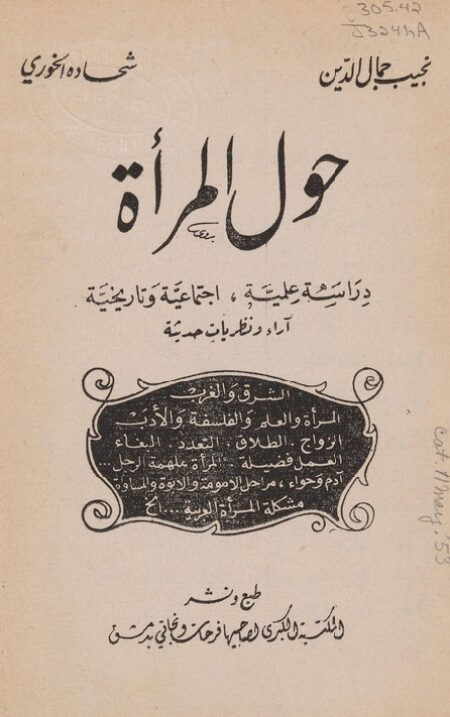 305.42
J324hA
نجيب جمال الدّين
شحاده الخوري
حول المرأة
بدوي
دراسة علميّة ، اجتماعيّة وتاريخيّة
آراء ونظريات حديثة
الشرق والغرب
المرأة والعلم والفلسفة والأدب
الزواج . الطلاق . التعدد . البغاء
العمل فضيلة .. المرأة ملهمة الرجل ...
آدم وحواء ، مراحل الامومة والابوة والمساواة
مشكلة المرأة العربية ... الخ
طبع ونشر
المكتبة الكبرى لصاحبيها فرحات ونجاتي بدمشق
cat. 11 may. '53